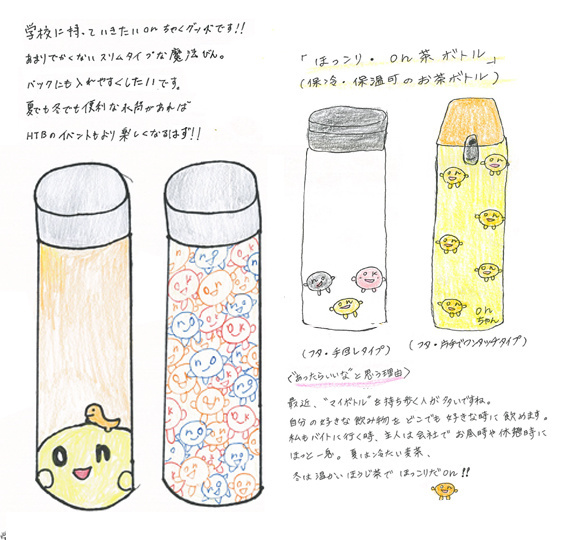 学校に持っていきたいonちゃんグッズです!!
あまりでかくないスリムタイプな魔法びん。
バックにも入れやすくしたいです。
夏でも冬でも便利な水筒があれば
HTBのイベントもより楽しくなるはず!!
on
「ほっこり・on茶ボトル」
(保冷・保温可のお茶ボトル)
onちゃん
(フタ・手回しタイプ)
(フタ・片手でワンタッチタイプ)
〈"あったらいいな"と思う理由〉
最近、"マイボトル"を持ち歩く人が多いですね。
自分の好きな飲み物をどこでも好きな時に飲めます。
私もバイトに行く時、主人は会社でお昼時や休憩時に
ほっと一息。夏は冷たい麦茶、
冬は温かいほうじ茶でほっこりだon!!